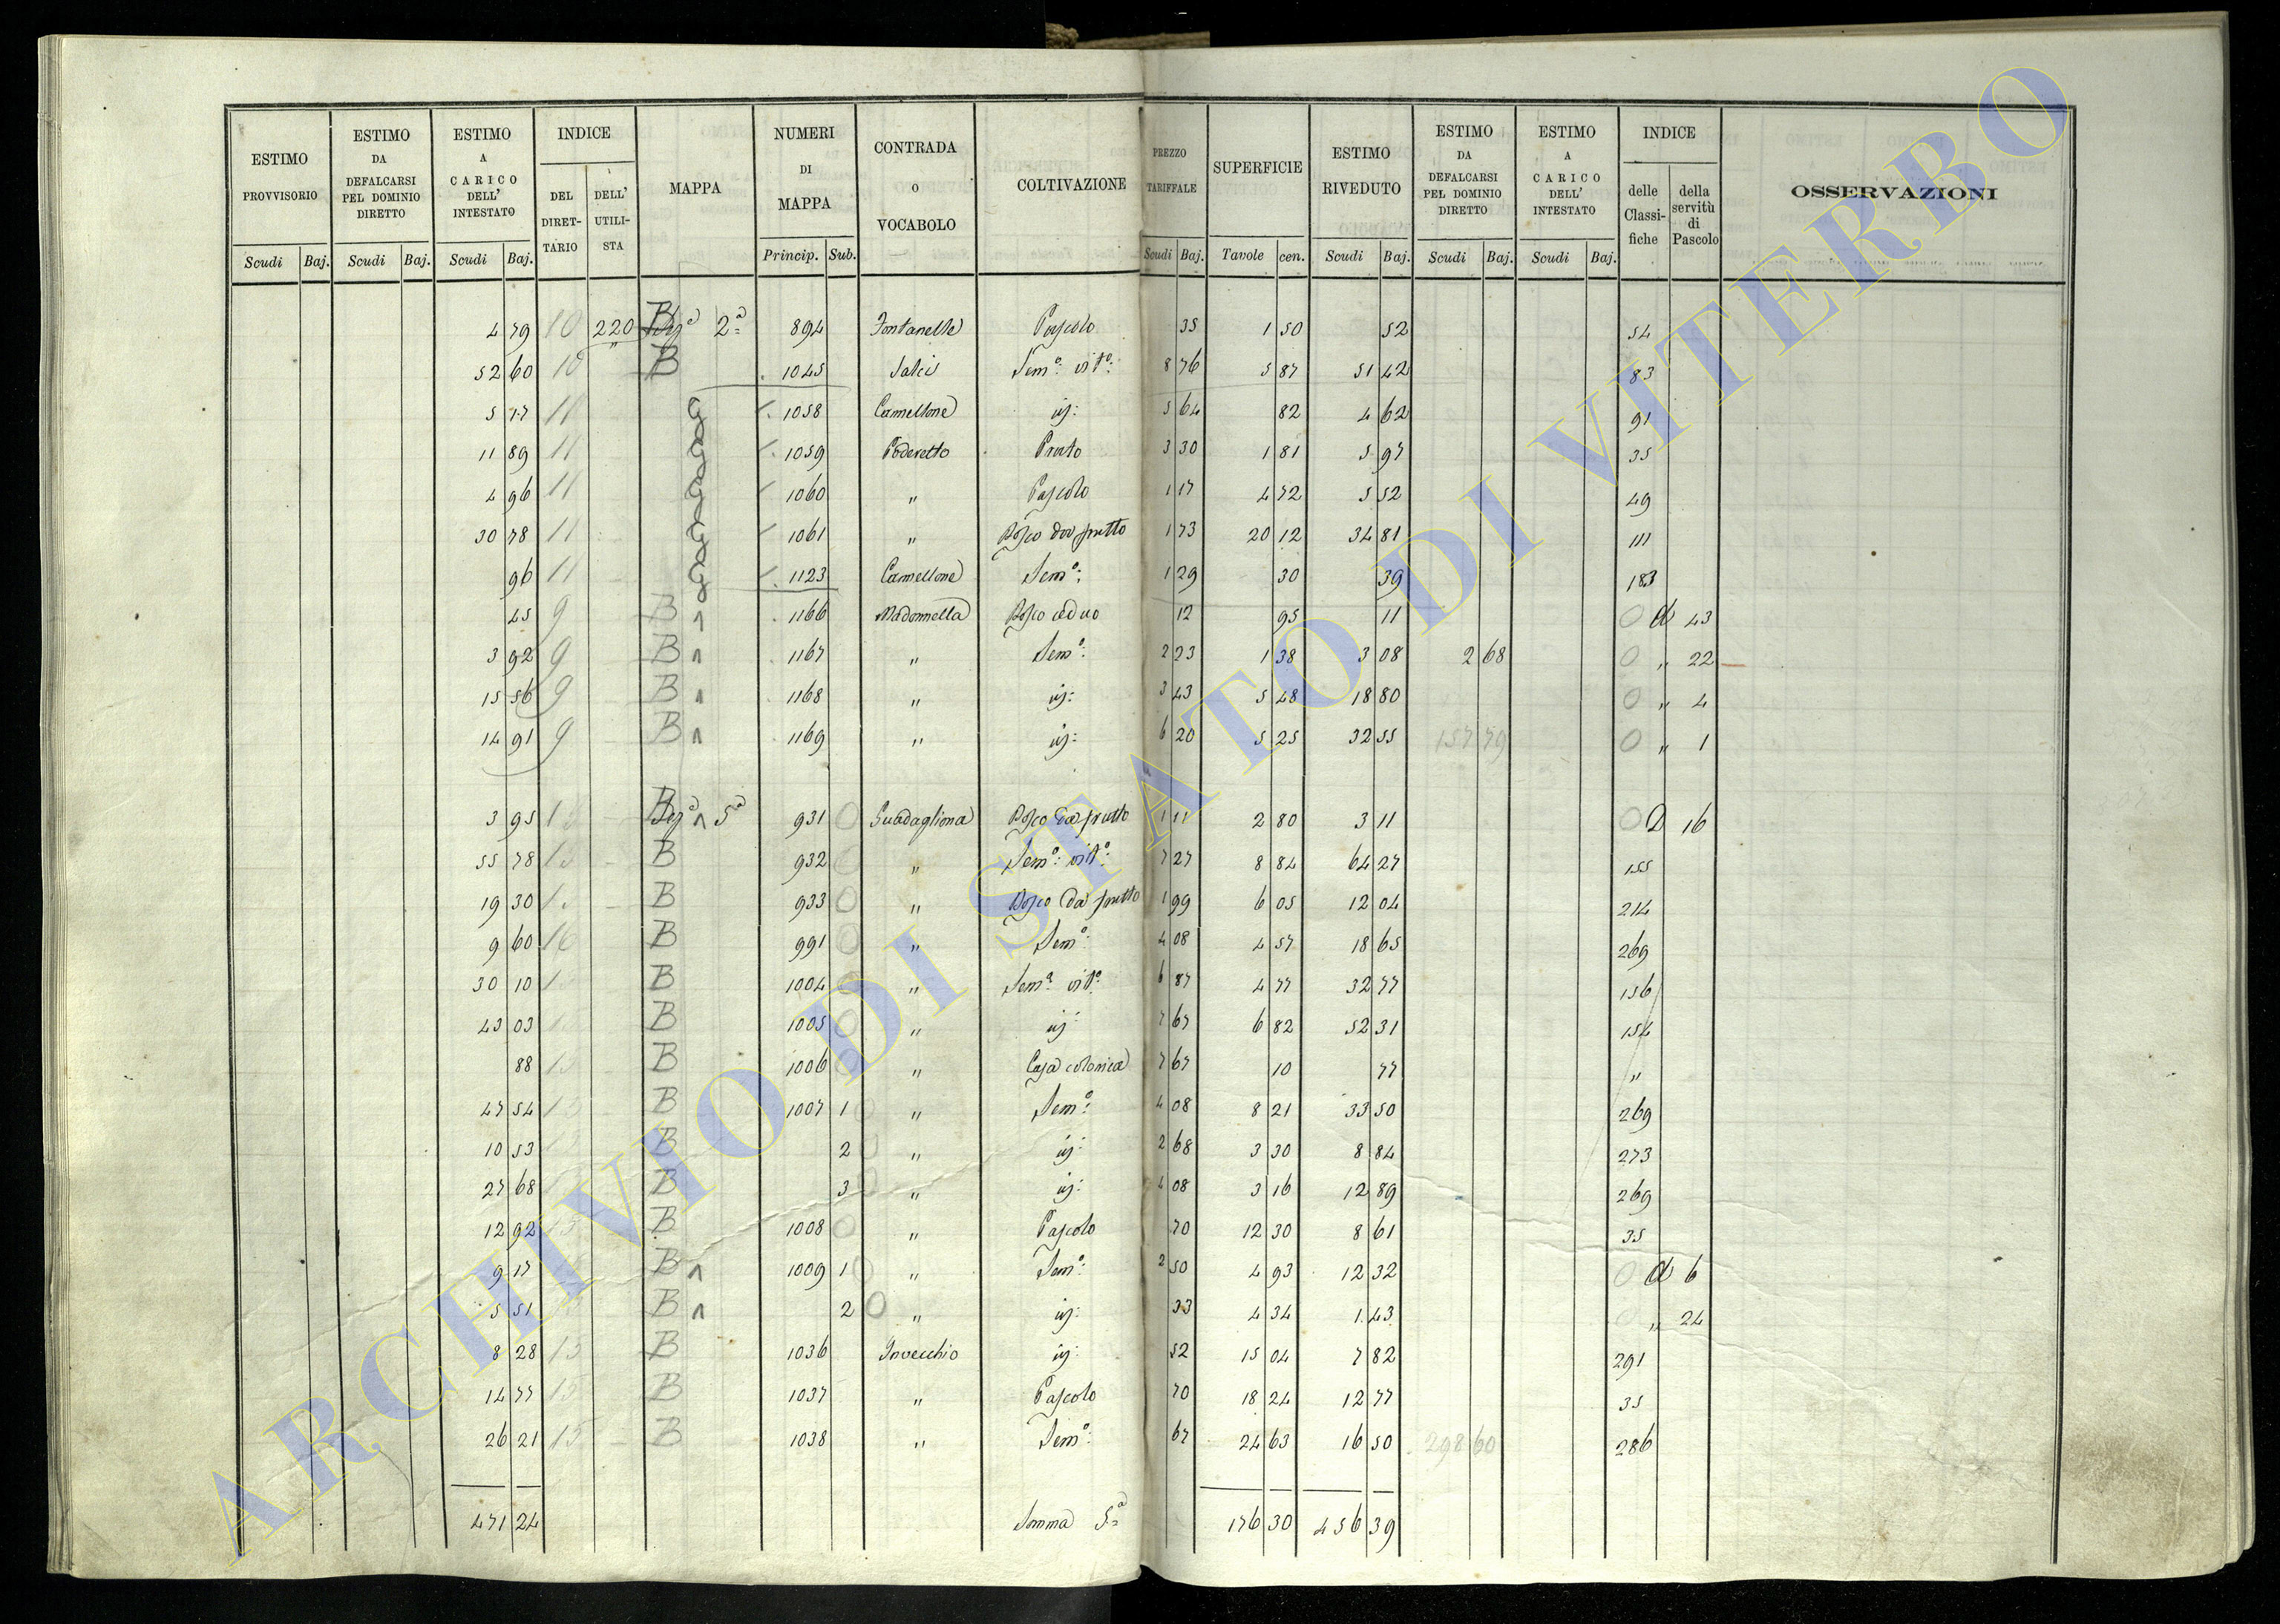 ESTIMO PROVVISORIO Scudi Baj. | ESTIMO DA DEFALCARSI PEL DOMINIO DIRETTO Scudi Baj. | ESTIMO A CARICO DELL' INTESTATO Scudi Baj. | INDICE DEL DIRETTARIO DELL' UTILISTA | MAPPA | NUMERI DI MAPPA Princip. Sub. | CONTRADA O VOCABOLO | COLTIVAZIONE | PREZZO TARIFFALE Scudi Baj. | SUPERFICIE Tavole cen. | ESTIMO RIVEDUTO Scudi Baj. | ESTIMO DA DEFALCARSI PEL DOMINIO DIRETTO Scudi Baj. | ESTIMO A CARICO DELL' INTESTATO Scudi Baj. | INDICE delle Classifiche della servitù di Pascolo | OSSERVAZIONI
4 79 10 220 B 2ª 894 Fontanelle Pascolo 35 1 50 52 54
52 60 10 " B 1045 Salci Semº: vitº: 8 76 5 87 51 42 83
5 77 11 1058 Camellone ig: 5 64 82 4 62 91
11 89 11 1059 Poderetto Prato 3 30 1 81 5 97 35
4 96 11 1060 " Pascolo 1 17 4 72 5 52 49
30 78 11 1061 " Bosco da frutto 1 73 20 12 34 81 111
96 11 1123 Camellone Semº: 1 29 30 39 183
45 9 B 1166 Madonnella Bosco ceduo 12 95 11 0 d 43
3 92 9 B 1167 " Semº: 2 23 1 38 3 08 2 68 0 " 22
15 56 9 B 1168 " ig: 3 43 5 48 18 80 0 " 4
14 91 9 B 1169 " ig: 6 20 5 25 32 55 157 79 0 " 1
3 95 B 5ª 931 0 Bosco da frutto 1 11 2 80 3 11 0 D 16
55 78 B 932 0 " Semº: vitº: 7 27 8 84 64 27 155
19 30 B 933 0 " Bosco da frutto 1 99 6 05 12 04 214
9 60 B 991 0 " Semº: 4 08 4 57 18 65 269
30 10 B 1004 0 " Semº: vitº: 6 87 4 77 32 77 156
43 03 B 1005 0 " ig: 7 67 6 82 52 31 154
88 B 1006 0 " Casa colonica 7 67 10 77 "
47 54 B 1007 1 0 " Semº: 4 08 8 21 33 50 269
10 53 B 2 0 " ig: 2 68 3 30 8 84 273
27 68 B 3 0 " ig: 4 08 3 16 12 89 269
12 92 B 1008 0 " Pascolo 70 12 30 8 61 35
9 17 B 1009 1 0 " Semº: 2 50 4 93 12 32 0 d 6
5 51 B 2 0 " ig: 33 4 34 1 43 " 24
8 28 15 B 1036 Invecchio ig: 52 15 04 7 82 291
14 77 15 B 1037 " Pascolo 70 18 24 12 77 35
26 21 15 B 1038 " Semº: 67 24 63 16 50 298 60 286
471 24 Somma 5ª 176 30 456 39
ARCHIVIO DI STATO DI VITERBO